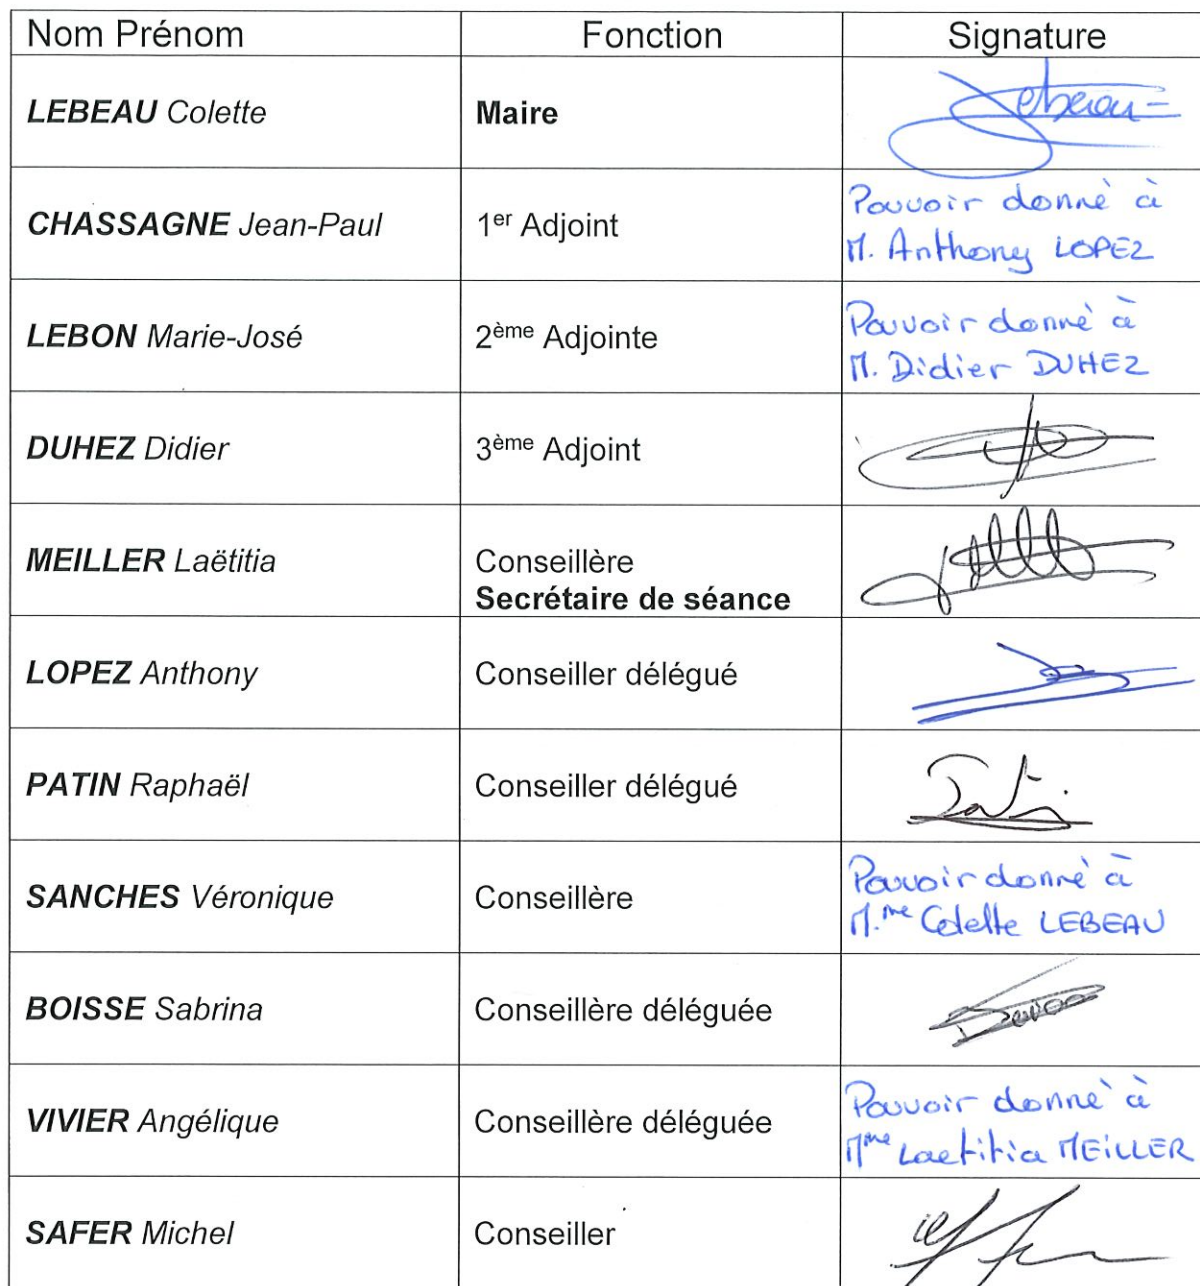 Nom Prénom Fonction Signature
LEBEAU Colette Maire Lebeau
CHASSAGNE Jean-Paul 1er Adjoint Pouvoir donné à
M. Anthony LOPEZ
LEBON Marie-José 2ème Adjointe Pouvoir donné à
M. Didier DUHEZ
DUHEZ Didier 3ème Adjoint
MEILLER Laëtitia Conseillère
Secrétaire de séance
LOPEZ Anthony Conseiller délégué
PATIN Raphaël Conseiller délégué Patin
SANCHES Véronique Conseillère Pouvoir donné à
M.me Colette LEBEAU
BOISSE Sabrina Conseillère déléguée
VIVIER Angélique Conseillère déléguée Pouvoir donné à
Mme Laetitia MEILLER
SAFER Michel Conseiller